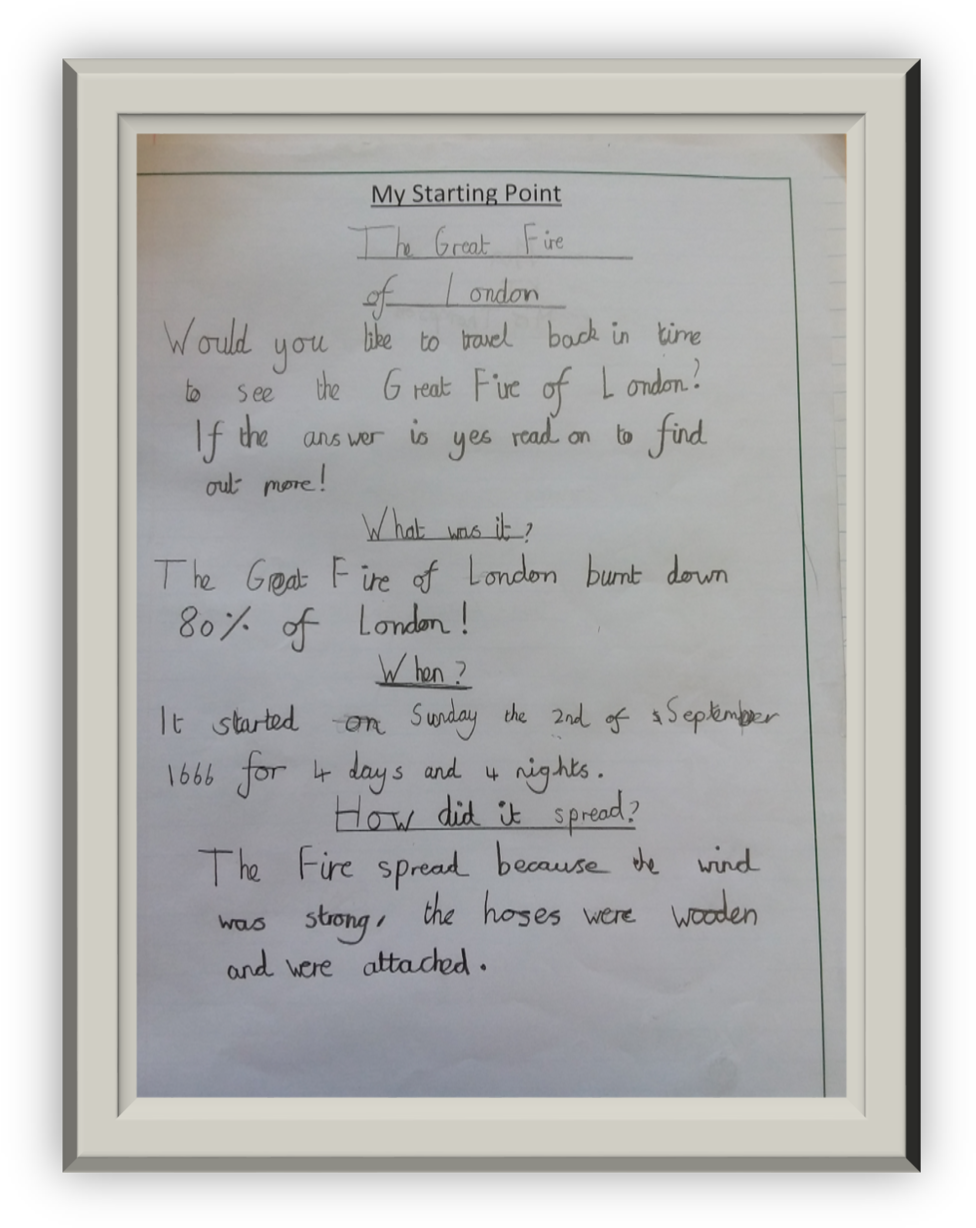 My Starting Point
The Great Fire
of London
Would you like to travel back in time
to see the Great Fire of London?
If the answer is yes read on to find
out more!
What was it?
The Great Fire of London burnt down
80% of London!
When?
It started on Sunday the 2nd of September
1666 for 4 days and 4 nights.
How did it spread?
The Fire spread because the wind
was strong, the hoses were wooden
and were attached.